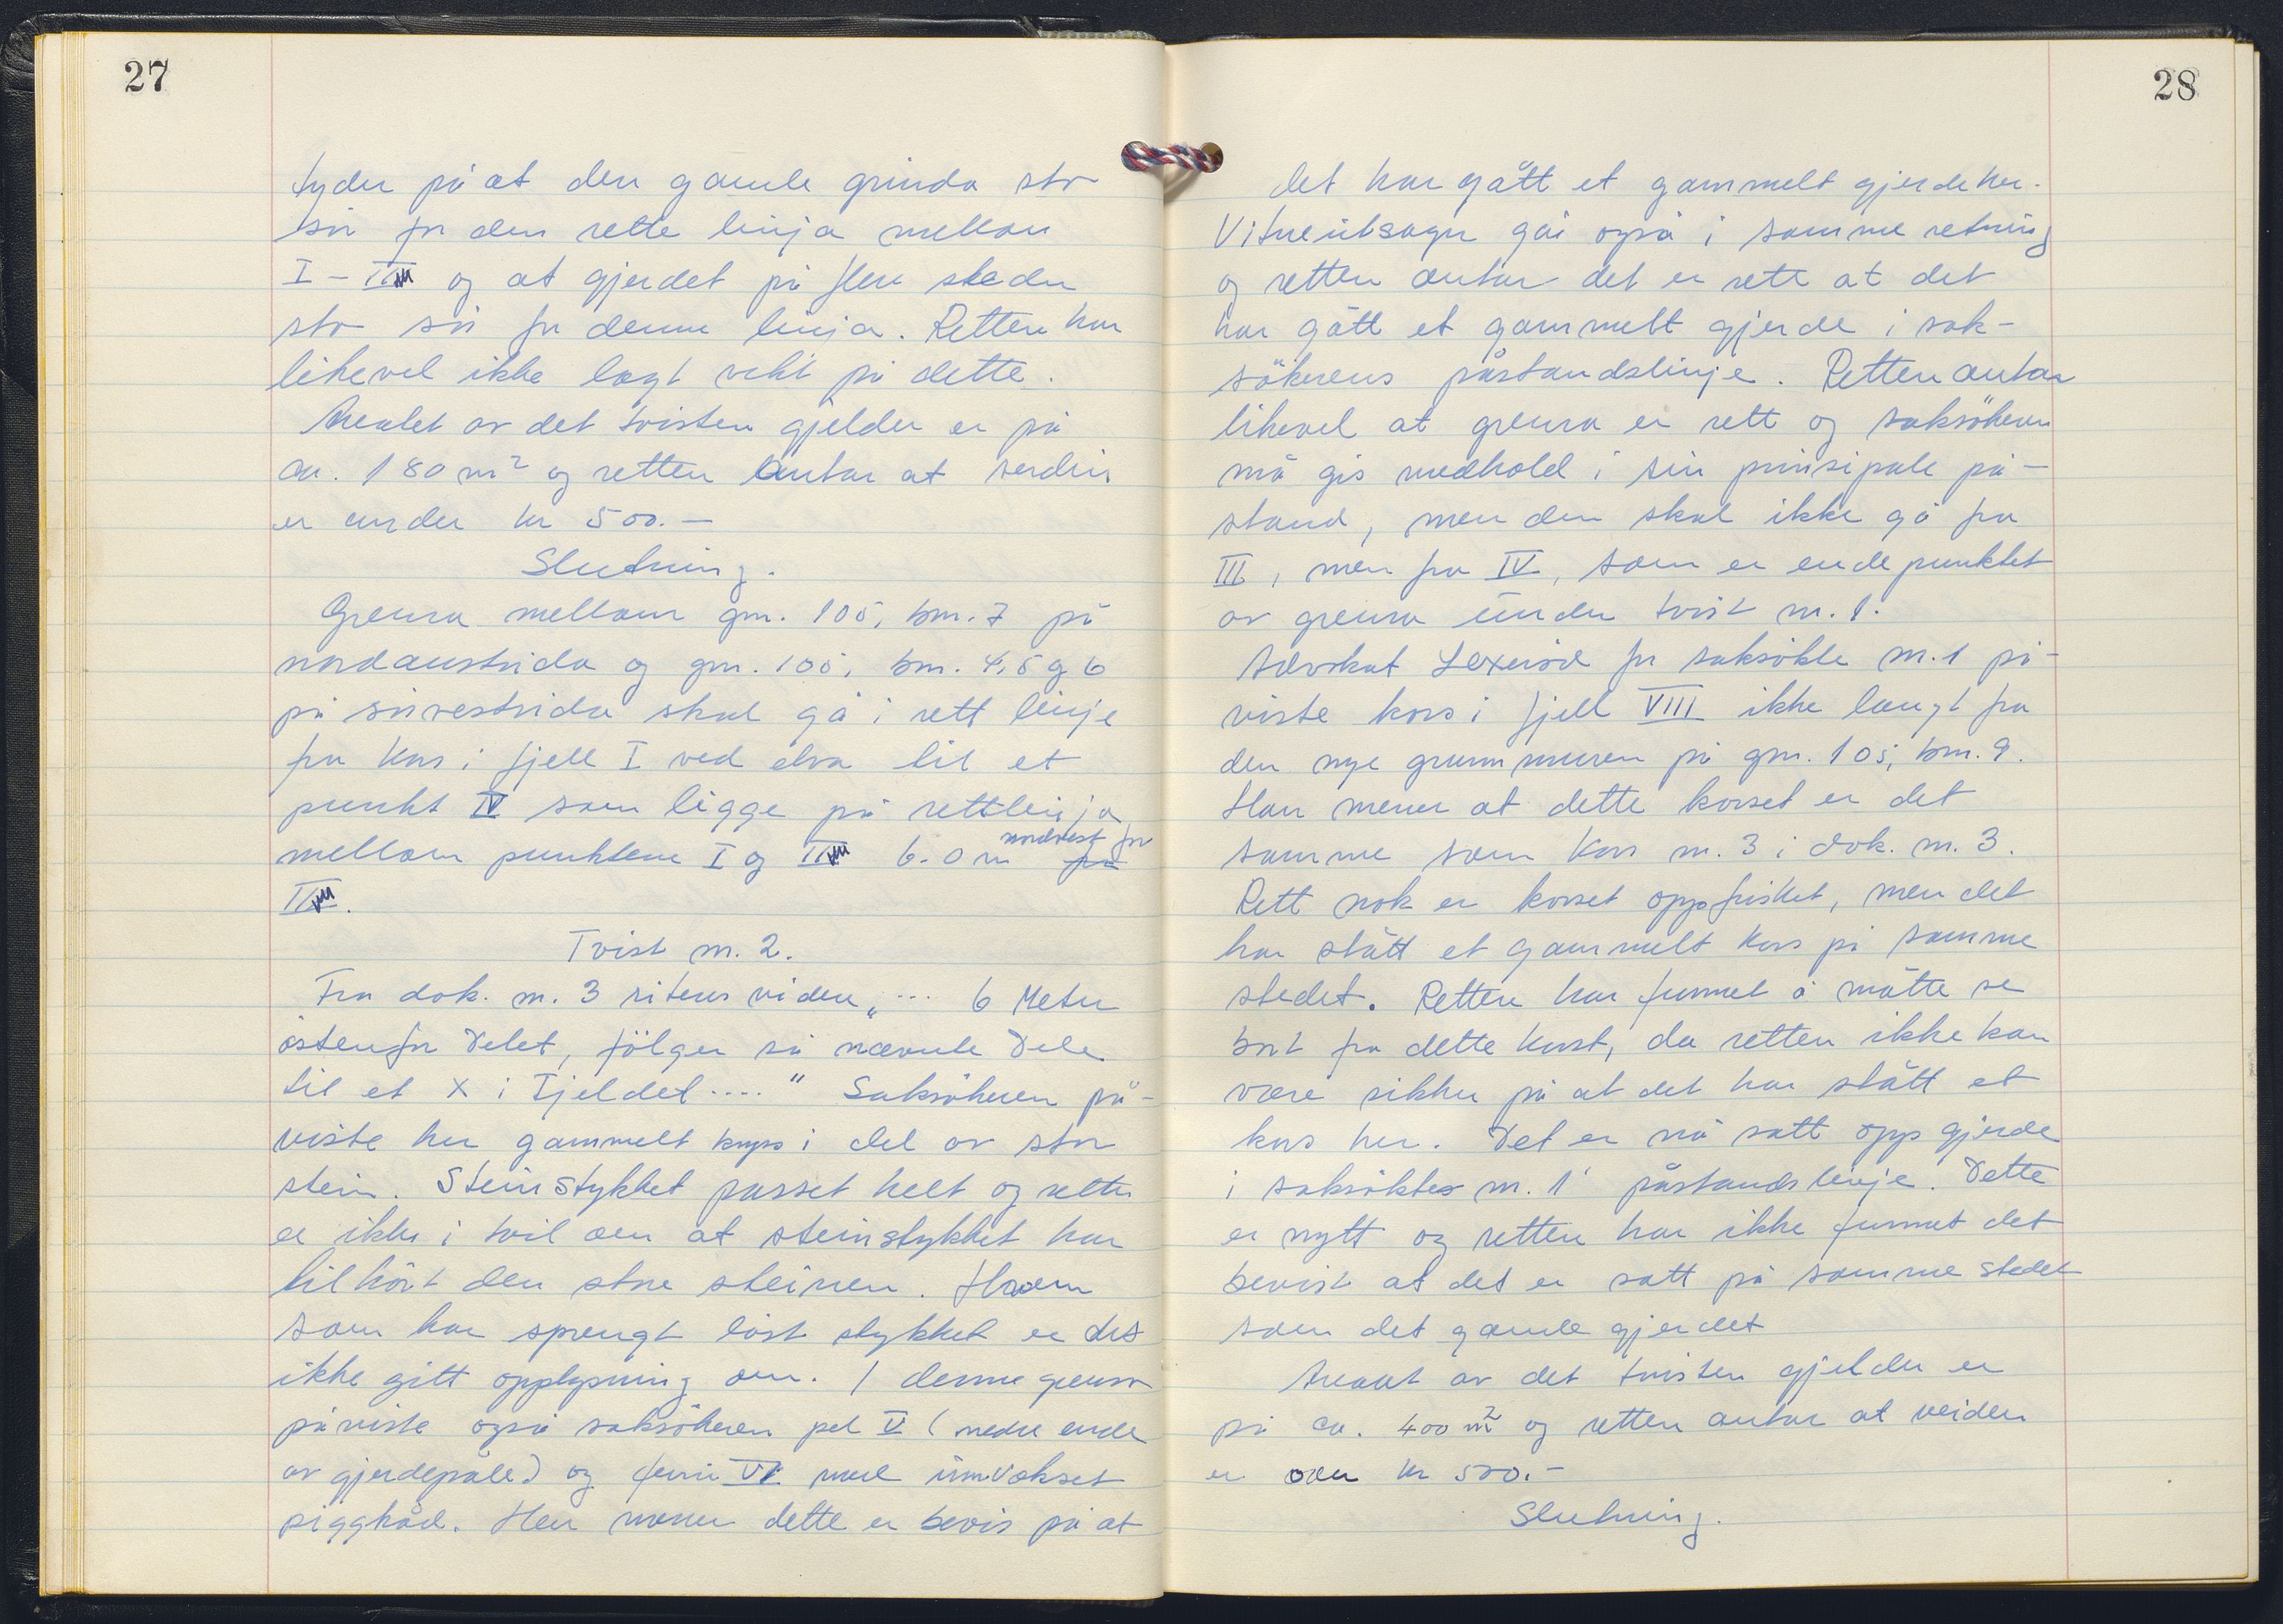 27
tyder på at den gamle grinda sto
sør for den rette linja mellom
I - III og at gjerdet på flere steder
sto sør for denne linja. Retten har
likevel ikke lagt vekt på dette.
Arealet av det tvisten gjelder er på
ca. 180 m² og retten antar at verdien
er under kr 500.-
Slutning.
Grensa mellom gnr. 105, bnr. 7 på
nordaustsida og gnr. 105, bnr. 4, 5 og 6
på sørvestsida skal gå i rett linje
fra kors i fjell I ved elva til et
punkt IV som ligge på rettlinja
mellom punktene I og III 6.0 m nordvest for
III.
Tvist nr. 2.
Fra dok. nr. 3 siteres videre „... 6 Meter
östenfor Delet, fölger så nævnte Dele
til et X i Fjeldet...." Saksökeren på-
viste her gammelt kryss i del av stor
stein. Steinstykket passet helt og retten
er ikke i tvil om at steinstykket har
tilhört den store steinen. Hvem
som har sprengt löst stykket er det
ikke gitt opplysning om. I denne grensa
påviste også saksökeren pel V (nedre ende
av gjerdepåle) og furu VI med innvokset
piggtråd. Han mener dette er bevis på at
28
det har gått et gammelt gjerde her.
Vitneutsagn går også i samme retning
og retten antar det er rett at det
har gått et gammelt gjerde i sak-
sökerens påstandslinje. Retten antar
likevel at grensa er rett og saksökeren
må gis medhold i sin prinsipale på-
stand, men den skal ikke gå fra
III, men fra IV, som er endepunktet
av grensa under tvist nr. 1.
Advokat for saksökte nr. 1 på-
viste kors i fjell VIII ikke langt fra
den nye grunnmuren på gnr. 105, bnr. 9.
Han mener at dette korset er det
samme som kors nr. 3 i dok. nr. 3.
Rett nok er korset oppfrisket, men det
har stått et gammelt kors på samme
stedet. Retten har funnet å måtte se
bort fra dette korset, da retten ikke kan
være sikker på at det har stått et
kors her. Det er nå satt opp gjerde
i saksöktes nr. 1 påstandslinje. Dette
er nytt og retten har ikke funnet det
bevist at det er satt på samme stedet
som det gamle gjerdet
Arealet av det tvisten gjelder er
på ca. 400 m² og retten antar at verdien
er over kr 500.-
Slutning.